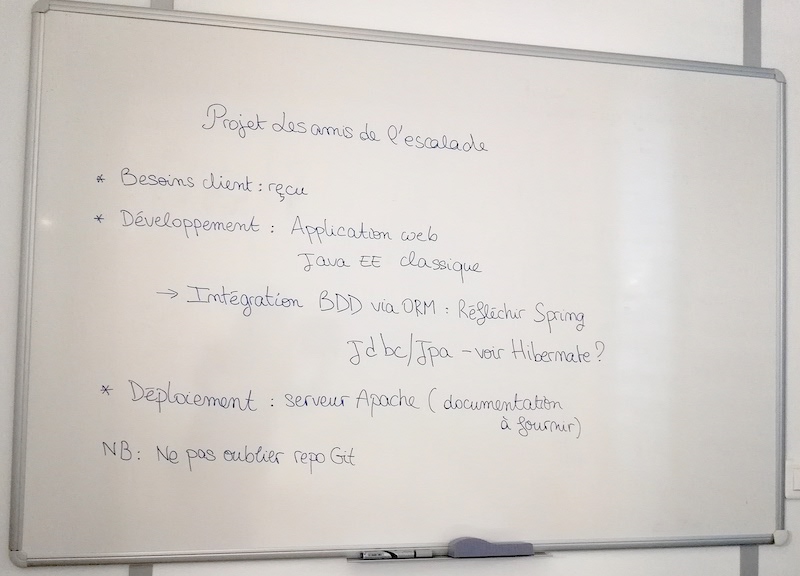 Projet Les amis de l'escalade
* Besoins client : reçu
* Développement : Application web
Java EE classique
→ Intégration BDD via ORM : Réfléchir Spring
Jdbc/Jpa - voir Hibernate ?
* Déploiement : serveur Apache (documentation
à fournir)
NB : Ne pas oublier repo Git